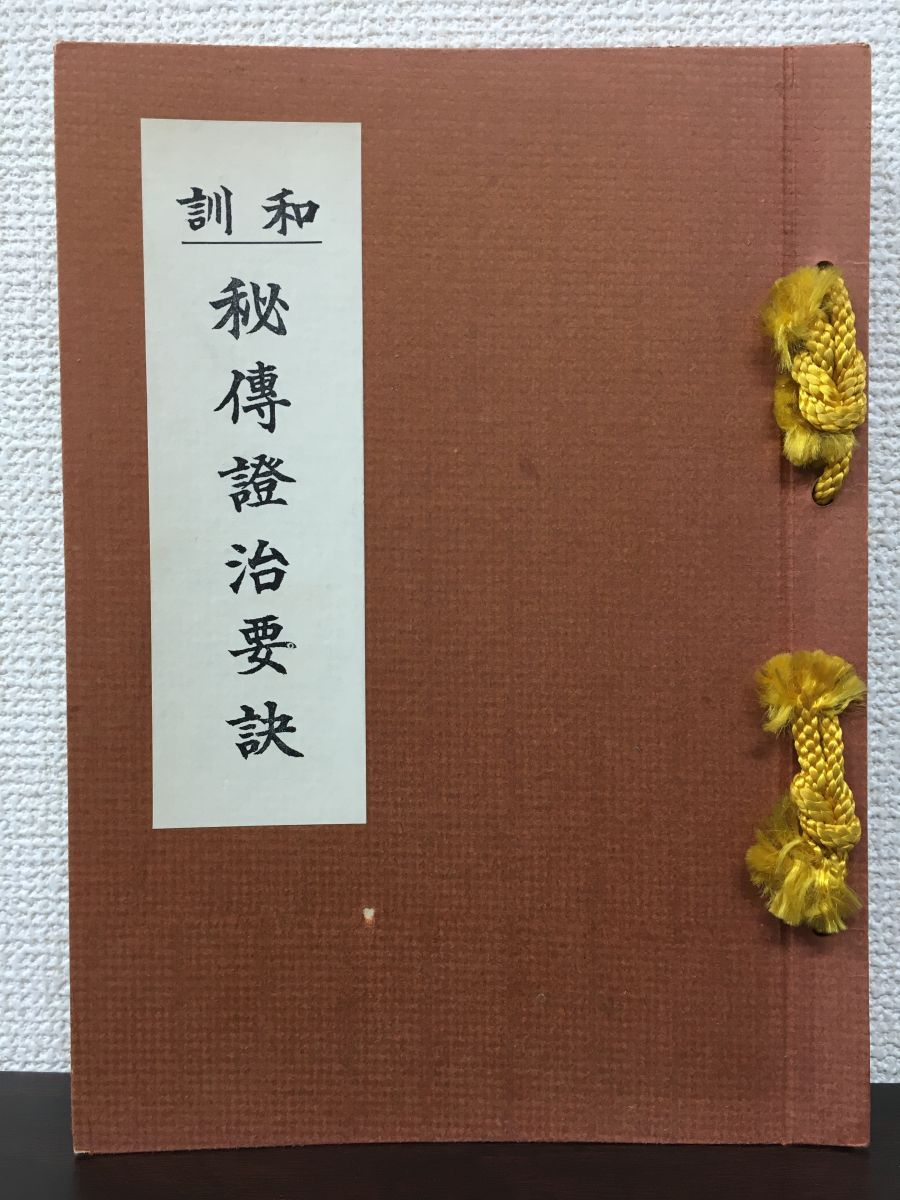 和訓
秘傳證治要訣